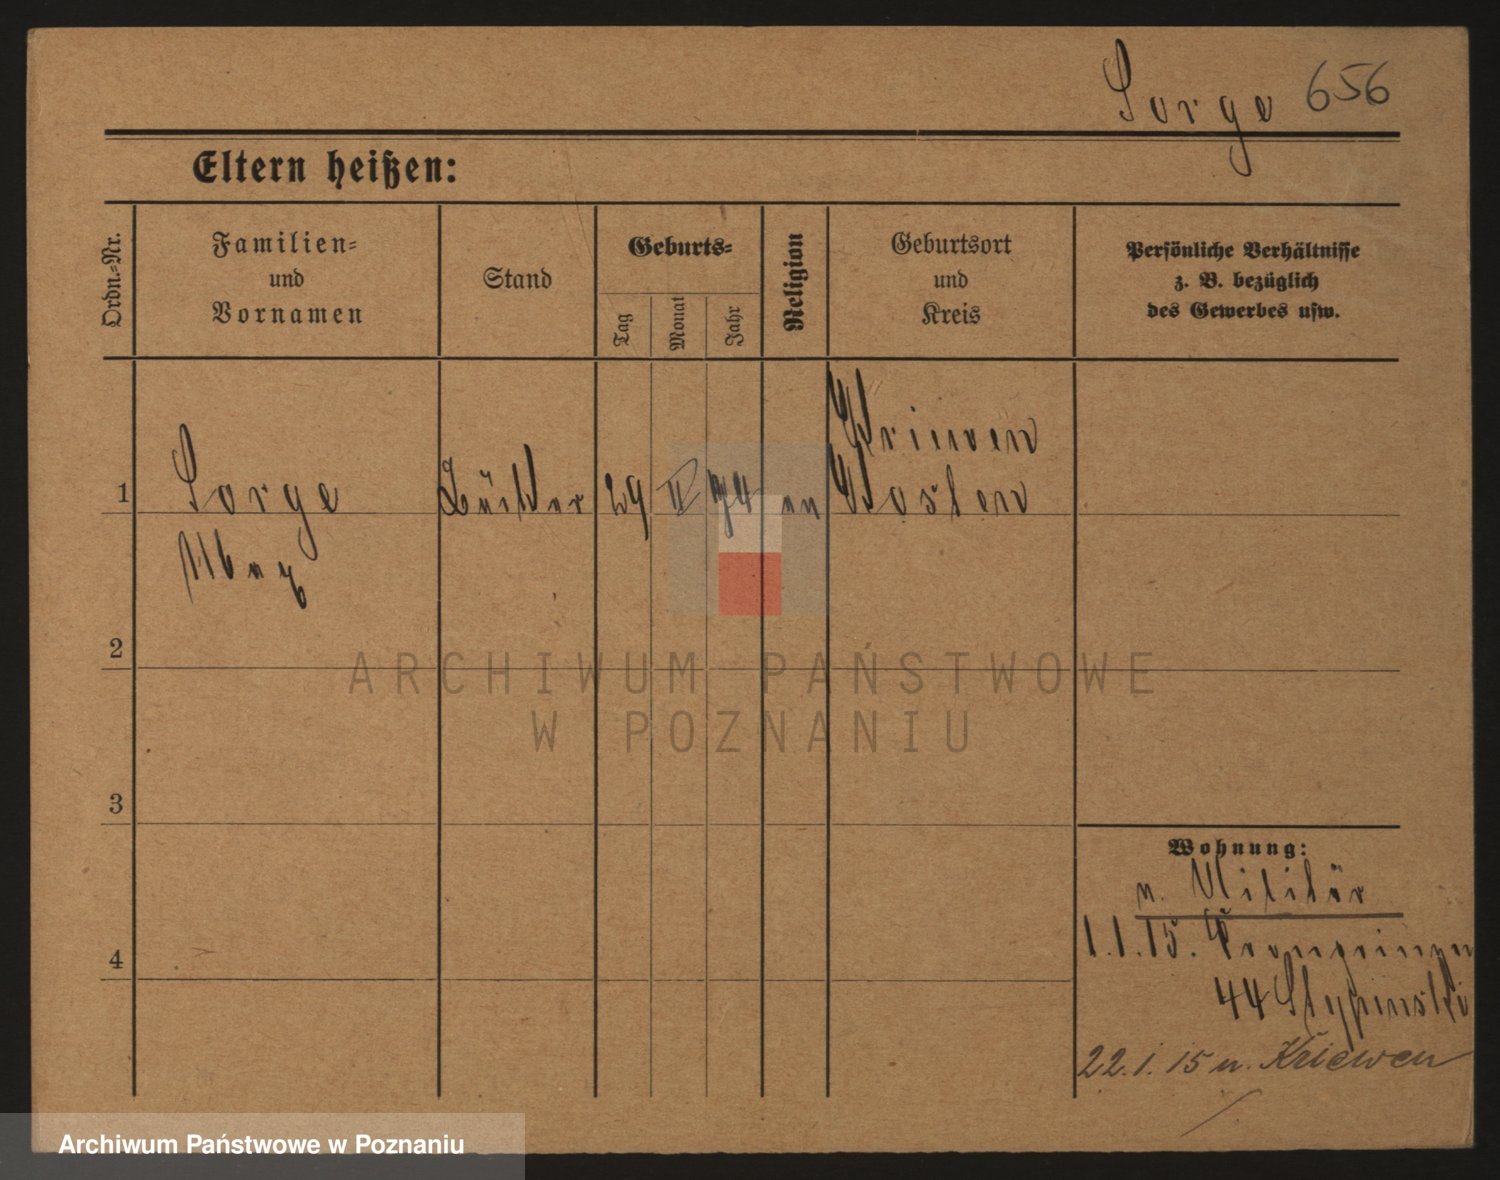 Sorge 656
Eltern heißen:
Ordn.-Nr.
Familien-
und
Vornamen
Stand
Geburts-
Tag
Monat
Jahr
Religion
Geburtsort
und
Kreis
Persönliche Verhältnisse
z. B. bezüglich
des Gewerbes usw.
Kriewen
1 Sorge 29 II 74 ev Kosten
Max
2
3
4
ARCHIWUM PAŃSTWOWE
W POZNANIU
Wohnung:
v. Militär
1.1.15. Kronprinzen
44 Stypinski
22.1.15 n. Kriewen
Archiwum Państwowe w Poznaniu